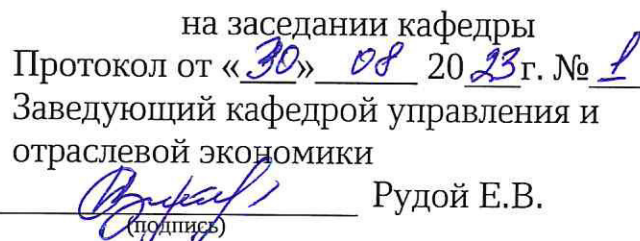 на заседании кафедры
Протокол от «30» 08 2023г. № 1
Заведующий кафедрой управления и
отраслевой экономики
Рудой Е.В.
(подпись)